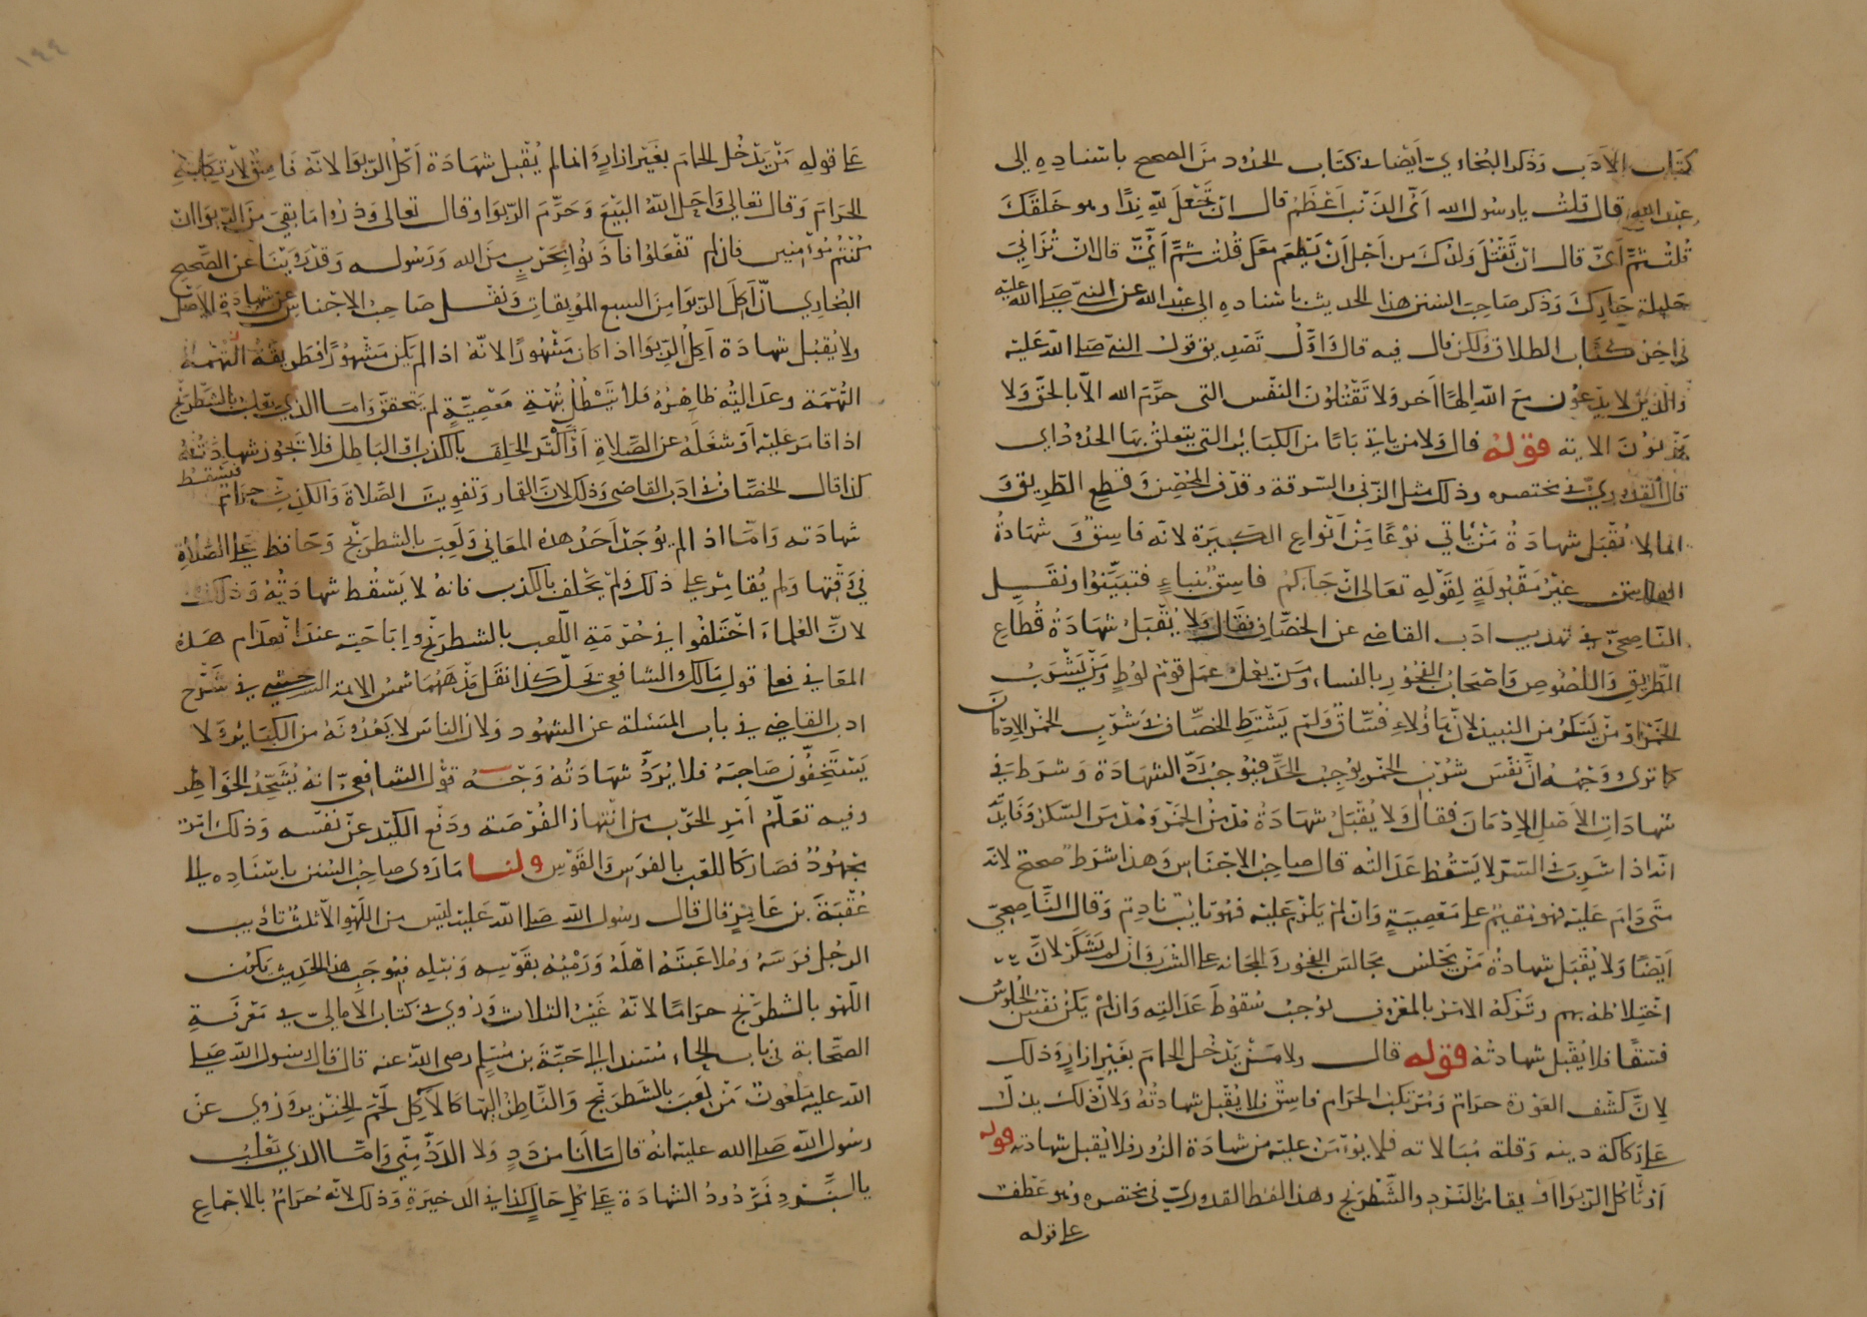 كتاب الأدب وذكر البخاري ايضا في كتاب الحدود من الصحيح باسناده الى
عبد الله قال قلت يا رسول الله اي الذنب اعظم قال ان تجعل لله ندا وهو خلقك
قلت ثم اي قال ان تقتل ولدك من اجل ان يطعم معك قلت ثم اي قال ان تزاني
حليلة جارك وذكر صاحب السنن هذا الحديث باسناده الى عبد الله عن النبي صلى الله عليه
في اخر كتاب الطلاق ولكن قال فيه قال وانزل تصديق قول النبي صلى الله عليه
والذين لا يدعون مع الله الها اخر ولا تقتلون النفس التي حرم الله الا بالحق ولا
يزنون الاية قوله قال ولا من ياتي بابا من الكبائر التي يتعلق بها الحدود اي
قال القدوري في مختصره وذلك مثل الزنى والسرقة وقذف المحصن وقطع الطريق و
انما لا تقبل شهادة من ياتي نوعا من انواع الكبيرة لانه فاسق وشهادة
الفاسق غير مقبولة لقوله تعالى ان جاءكم فاسق بنباء فتبينوا ونقل
الناصحي في تهذيب ادب القاضي عن الخصاف فقال ولا يقبل شهادة قطاع
الطريق واللصوص واصحاب الفجور بالنساء ومن يعمل عمل قوم لوط ومن يشرب
الخمر او من يسكر من النبيذ لان هاؤلاء فساق ولم يشترط الخصاف في شرب الخمر الادمان
كما ترى ووجهه ان نفس شرب الخمر يوجب الحد فيوجب رد الشهادة وشرط في
شهادات الاصل الادمان فقال ولا يقبل شهادة مدمن الخمر ومدمن السكر وفايدته
انه اذا شرب في السر لا يسقط عدالته قال صاحب الاجناس وهذا شرط صحيح لانه
متى دام عليه فهو مقيم على معصية وان لم يدم عليه فهو تايب نادم وقال الناصحي
ايضا ولا يقبل شهادة من يجلس مجالس الفجور والمجانة على الشرب وان لم يسكر لان
اختلاطه بهم وتركه الامر بالمعروف يوجب سقوط عدالته وان لم يكن نفس الجلوس
فسقا فلا يقبل شهادته قوله قال ولا من يدخل الحمام بغير ازار وذلك
لان كشف العورة حرام ومرتكب الحرام فاسق فلا يقبل شهادته ولان ذلك يدل
على ركاكة دينه وقلة مبالاته فلا يؤمن عليه من شهادة الزور فلا يقبل شهادته قوله
او ياكل الربوا او يقامر بالنرد والشطرنج وهذا لفظ القدوري في مختصره وهو عطف
على قوله
على قوله من يدخل الحمام بغير ازار وانما لم يقبل شهادة آكل الربوا لانه فاسق لارتكابه
الحرام وقال تعالى واحل الله البيع وحرم الربوا وقال تعالى وذروا ما بقي من الربوا ان
كنتم مؤمنين فان لم تفعلوا فاذنوا بحرب من الله ورسوله وقد روينا عن الصحيح
البخاري ان اكل الربوا من السبع الموبقات ونقل صاحب الاجناس عن شهادة الاصل
ولا يقبل شهادة آكل الربوا اذا كان مشهورا لانه اذا لم يكن مشهورا فطريقه التهمة
التهمة وعدالته ظاهرة فلا تبطل بتهمة معصية لم يتحقق واما الذي يلعب بالشطرنج
اذا قامر عليه او شغله عن الصلاة او اكثر الحلف بالكذب والباطل فلا تجوز شهادته
كذا قال الخصاف في ادب القاضي وذلك لان القمار وتفويت الصلاة والكذب حرام فتسقط
شهادته واما اذا لم يوجد احد هذه المعاني ولعب بالشطرنج وحافظ على الصلاة
في وقتها ولم يقامر على ذلك ولم يحلف بالكذب فانه لا يسقط شهادته وذلك
لان العلماء اختلفوا في حرمة اللعب بالشطرنج واباحته عند انعدام هذه
المعاني فعلى قول مالك والشافعي تحل كذا نقل مذهبهما شمس الائمة السرخسي في شرح
ادب القاضي في باب المسئلة عن الشهود ولان الناس لا يعدونه من الكبائر ولا
يستخفون صاحبه فلا يرد شهادته وجه قول الشافعي انه يشحذ الخواطر
وفيه تعلم امر الحرب من انتهاز الفرصة ودفع الكيد عن نفسه وذلك امر
محمود فصار كاللعب بالفرس والقوس ولنا ما روى صاحب السنن باسناده الى
عقبة بن عامر قال قال رسول الله صلى الله عليه ليس من اللهو الا ثلث تاديب
الرجل فرسه وملاعبته اهله ورميه بقوسه ونبله فبموجب هذا الحديث يكون
اللهو بالشطرنج حراما لانه غير الثلاث وروي في كتاب الامالي في معرفة
الصحابة في باب الحاء مسندا الى حبة بن مسلم رضى الله عنه قال قال رسول الله صلى
الله عليه ملعون من لعب بالشطرنج والناظر اليها كالآكل لحم الخنزير وروي عن
رسول الله صلى الله عليه انه قال ما انا من دد ولا الدد مني واما الذي يلعب
بالنرد فمردود الشهادة على كل حال كذا في الذخيرة وذلك لانه حرام بالاجماع
١٩٩